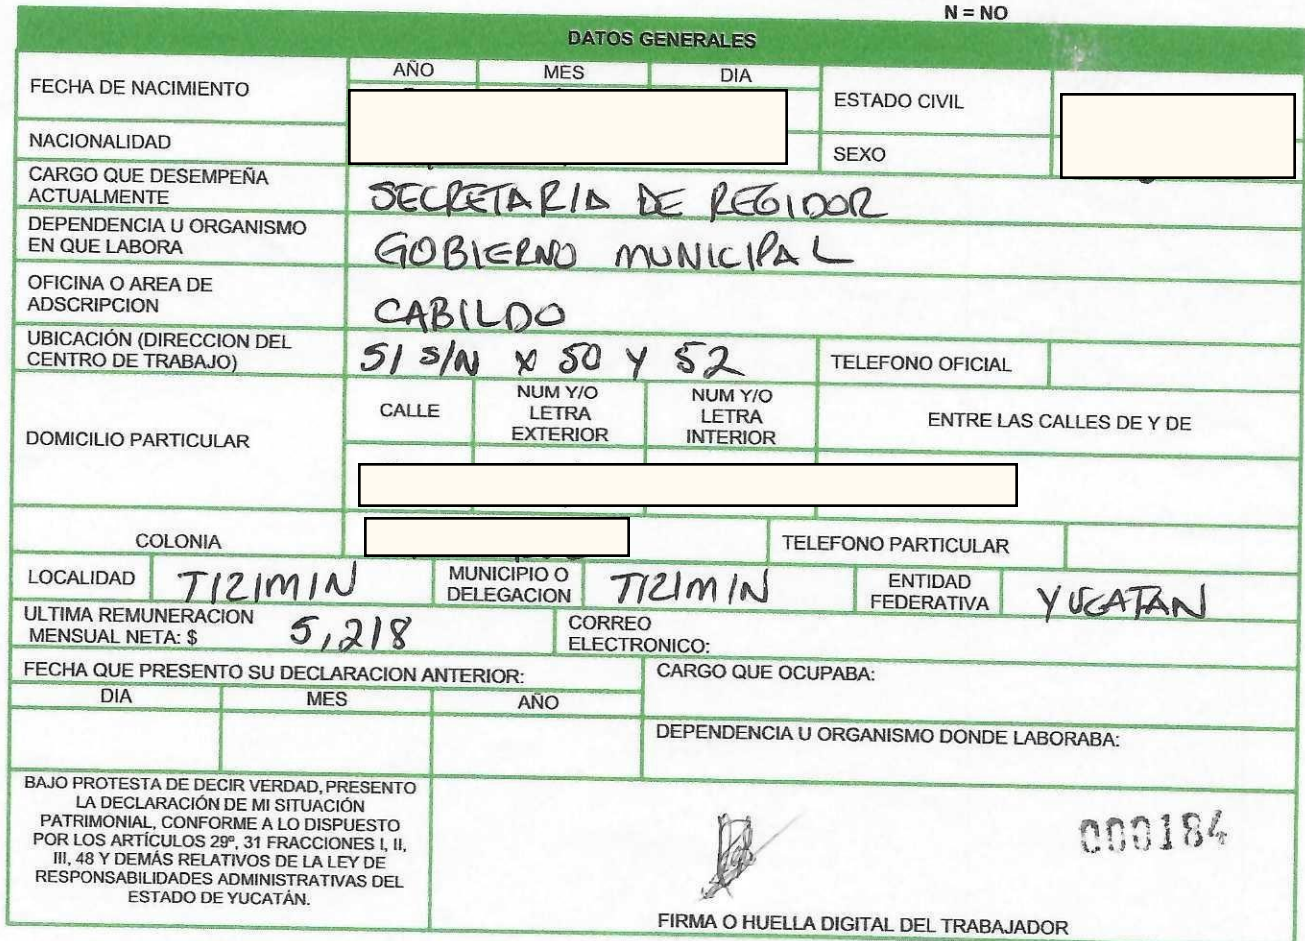 N = NO
DATOS GENERALES
FECHA DE NACIMIENTO
AÑO
MES
DIA
ESTADO CIVIL
NACIONALIDAD
SEXO
CARGO QUE DESEMPEÑA
ACTUALMENTE
SECRETARIA DE REGIDOR
DEPENDENCIA U ORGANISMO
EN QUE LABORA
GOBIERNO MUNICIPAL
OFICINA O AREA DE
ADSCRIPCION
CABILDO
UBICACIÓN (DIRECCION DEL
CENTRO DE TRABAJO)
51 S/N x 50 Y 52
TELEFONO OFICIAL
DOMICILIO PARTICULAR
CALLE
NUM Y/O
LETRA
EXTERIOR
NUM Y/O
LETRA
INTERIOR
ENTRE LAS CALLES DE Y DE
COLONIA
TELEFONO PARTICULAR
LOCALIDAD
TIZIMIN
MUNICIPIO O
DELEGACION
TIZIMIN
ENTIDAD
FEDERATIVA
YUCATAN
ULTIMA REMUNERACION
MENSUAL NETA: $
5,218
CORREO
ELECTRONICO:
FECHA QUE PRESENTO SU DECLARACION ANTERIOR:
DIA
MES
AÑO
CARGO QUE OCUPABA:
DEPENDENCIA U ORGANISMO DONDE LABORABA:
BAJO PROTESTA DE DECIR VERDAD, PRESENTO
LA DECLARACIÓN DE MI SITUACIÓN
PATRIMONIAL, CONFORME A LO DISPUESTO
POR LOS ARTÍCULOS 29º, 31 FRACCIONES I, II,
III, 48 Y DEMÁS RELATIVOS DE LA LEY DE
RESPONSABILIDADES ADMINISTRATIVAS DEL
ESTADO DE YUCATÁN.
000184
FIRMA O HUELLA DIGITAL DEL TRABAJADOR